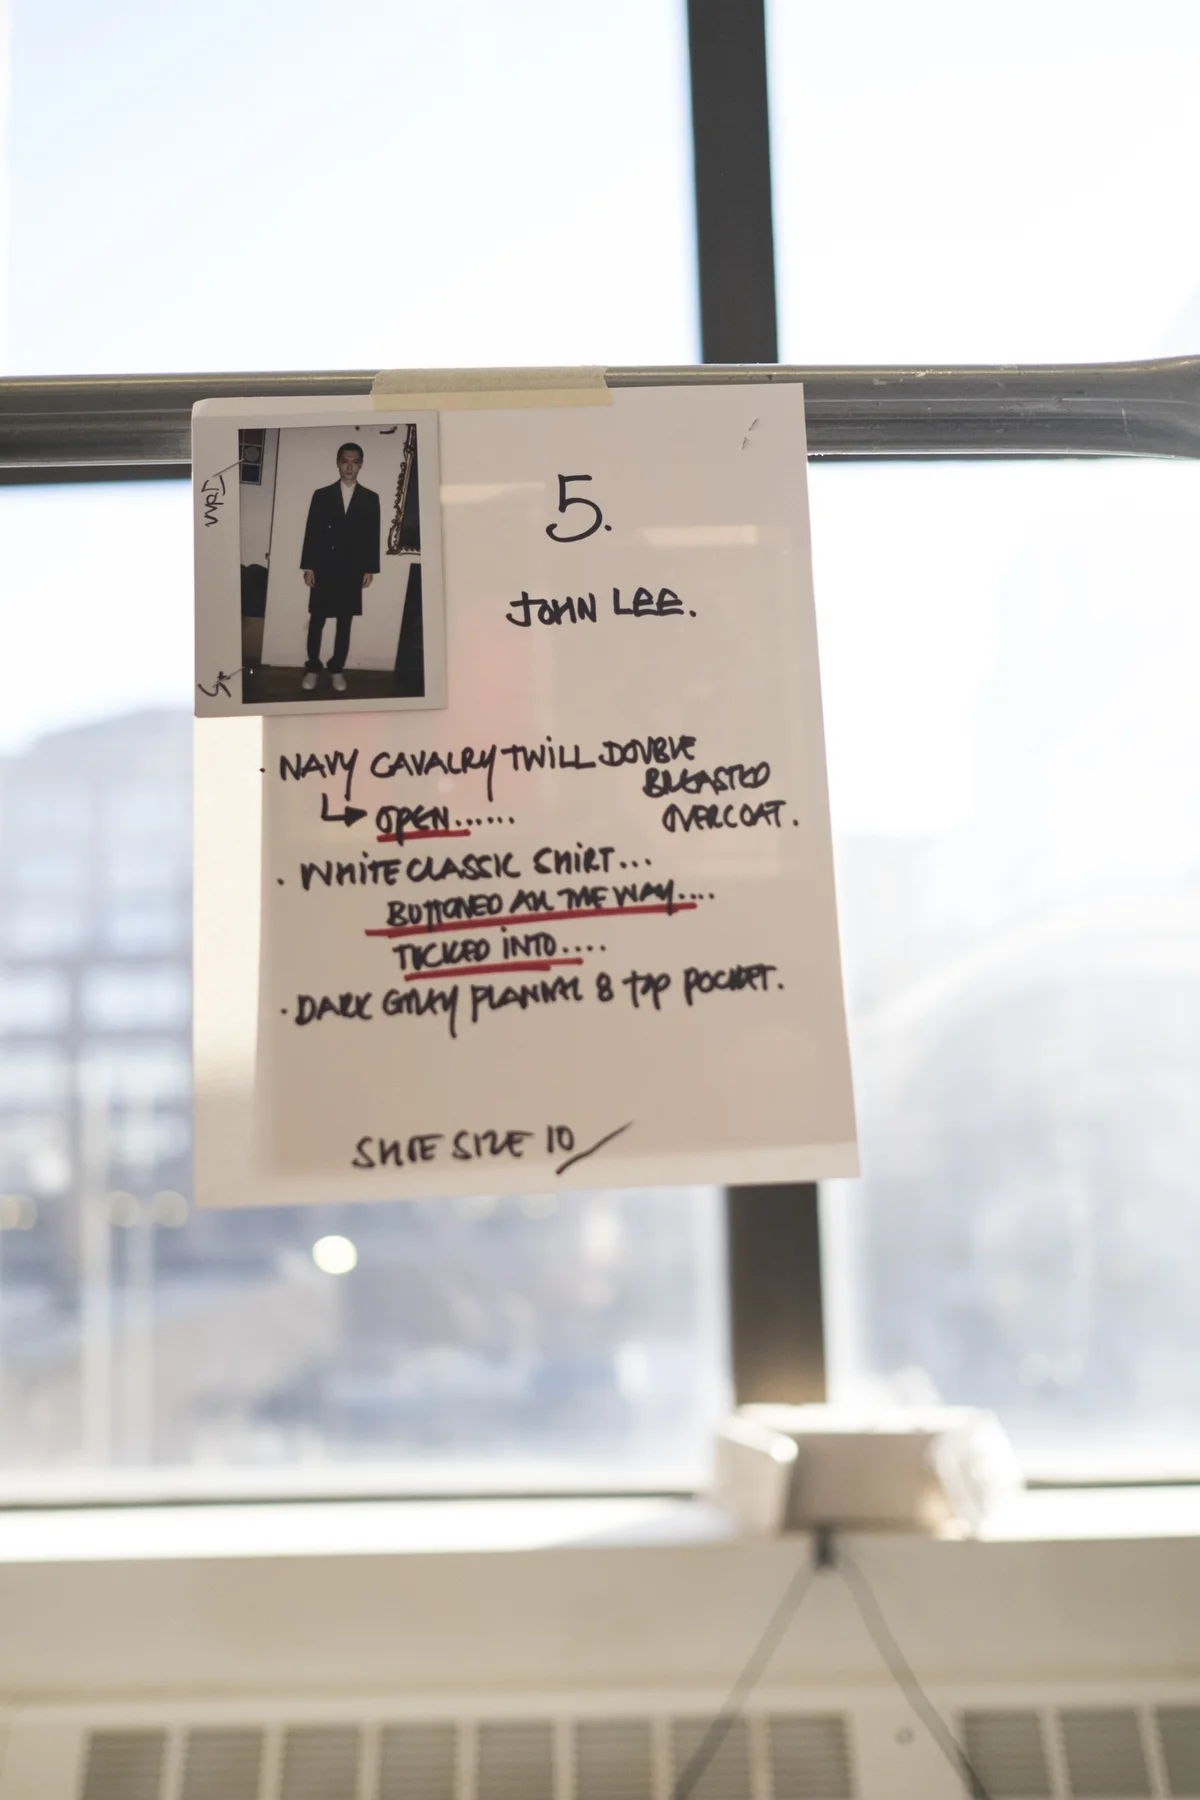 5.
JOHN LEE.
· NAVY CAVALRY TWILL DOUBLE
BREASTED
OVERCOAT.
↳ OPEN......
· WHITE CLASSIC SHIRT...
BUTTONED ALL THE WAY....
TUCKED INTO....
· DARK GREY 8 top POCKET.
SHOE SIZE 10